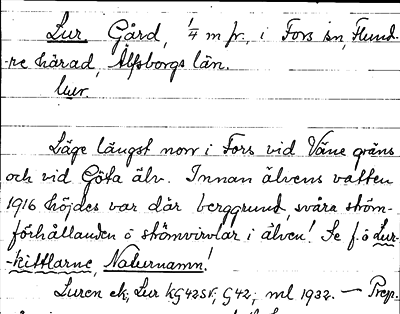 Lur. Gård, 1/4 m fr., i Fors sn, Flund-
re härad, Älfsborgs län.
lur.
Läge längst norr i Fors vid Väne gräns
och vid Göta älv. Innan älvens vatten
1916 höjdes var där berggrund, svåra ström-
förhållanden o strömvirvlar i älven! Se f.ö Lur-
-kittlarne, Naturnamn!
Luren ek, Lur kG 42 SV; G 42; ml 1932. — Prep.